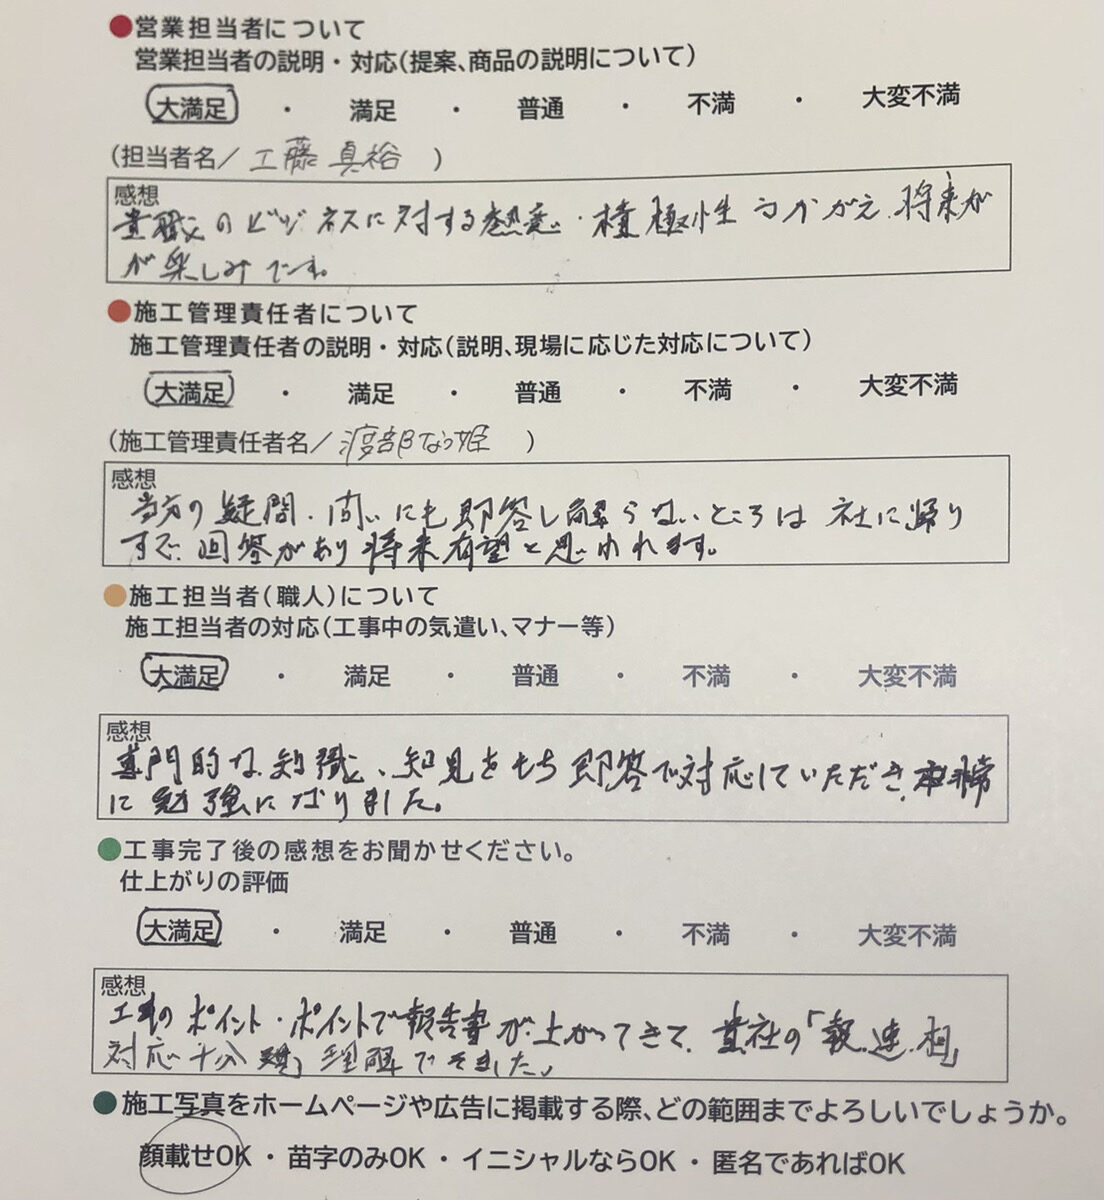 ●営業担当者について
営業担当者の説明・対応(提案、商品の説明について)
大満足 ・ 満足 ・ 普通 ・ 不満 ・ 大変不満
(担当者名/工藤 真裕 )
感想
貴職のビジネスに対する熱意・積極性うかがえ、将来が
が楽しみです。
●施工管理責任者について
施工管理責任者の説明・対応(説明、現場に応じた対応について)
大満足 ・ 満足 ・ 普通 ・ 不満 ・ 大変不満
(施工管理責任者名/渡部なつ姫 )
感想
当方の疑問・問いにも即答し解らないところは 社に帰り
すぐ回答があり将来有望と思われれます。
●施工担当者(職人)について
施工担当者の対応(工事中の気遣い、マナー等)
大満足 ・ 満足 ・ 普通 ・ 不満 ・ 大変不満
感想
専門的な知識、知見をもち即答で対応していただき、非常
に勉強になりました。
●工事完了後の感想をお聞かせください。
仕上がりの評価
大満足 ・ 満足 ・ 普通 ・ 不満 ・ 大変不満
感想
工事のポイント・ポイントで報告書が上がってきて、貴社の「報.連.相」
対応十分 理解できました。
●施工写真をホームページや広告に掲載する際、どの範囲までよろしいでしょうか。
顔載せOK ・ 苗字のみOK ・ イニシャルならOK ・ 匿名であればOK